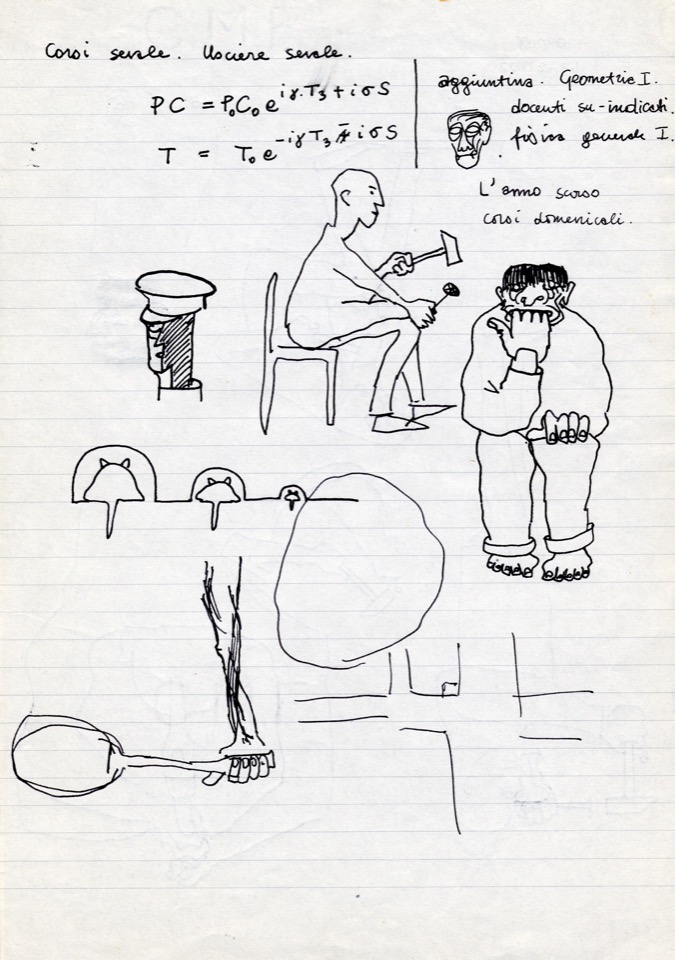 Corsi serale. Usciere serale.
PC = P₀C₀ e^{iγ·T₃ + iσS}
T = T₀ e^{-iγT₃ iσS}
aggiuntina. Geometria I.
docenti su-indicati.
fisica generale I.
L'anno scorso
corsi domenicali.